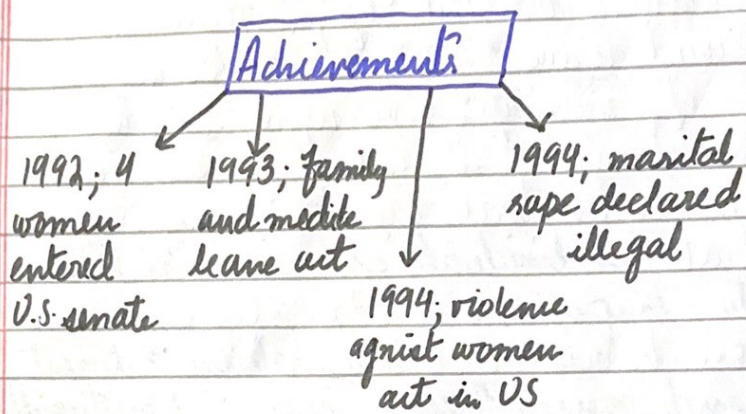 Achievements
1992; 4
women
entered
U.S. senate
1993; family
and medile
leave act
1994; violence
agnist women
act in US
1994; marital
rape declared
illegal